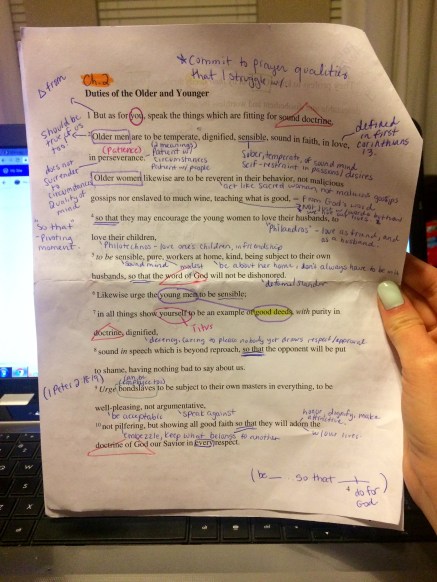 * Commit to prayer qualities
that I struggle w/
Ch. 2
Duties of the Older and Younger
1 But as for you, speak the things which are fitting for sound doctrine.
should be
true of us
too!
defined
in first
corinthians
13.
2 Older men are to be temperate, dignified, sensible, sound in faith, in love,
(patience) (2 meanings)
Patient w/
circumstances
Patient w/ people
Sober, temperate, of sound mind
Self-restraint in personal desires
in perseverance.
does not
surrender
to
circumstances
Quality of
mind
3 Older women likewise are to be reverent in their behavior, not malicious
act like sacred women, not malicious gossips
gossips nor enslaved to much wine, teaching what is good,
- From God's word
"So that"
- Pivoting
moment.
4 so that they may encourage the young women to love their husbands, to
"Philandros" - love as friend, and
as a husband.
love their children,
"Philoteknos - love one's children, in friendship
5 to be sensible, pure, workers at home, kind, being subject to their own
sound mind modest be about her home - don't always have to be in
husbands, so that the word of God will not be dishonored.
defamed/slander
6 Likewise urge the young men to be sensible;
7 in all things show yourself to be an example of good deeds, with purity in
Titus
doctrine, dignified,
decency, caring to please nobody yet draws respect/approval
8 sound in speech which is beyond reproach, so that the opponent will be put
to shame, having nothing bad to say about us.
(1 Peter 2:18-19)
(employees too)
9 Urge bondslaves to be subject to their own masters in everything, to be
well-pleasing, not argumentative,
be acceptable speak against
honor, dignify, make
attractive,
w/ our lives.
10 not pilfering, but showing all good faith so that they will adorn the
embezzle, keep what belongs to another
doctrine of God our Savior in every respect.
(be __ so that __
do for
God